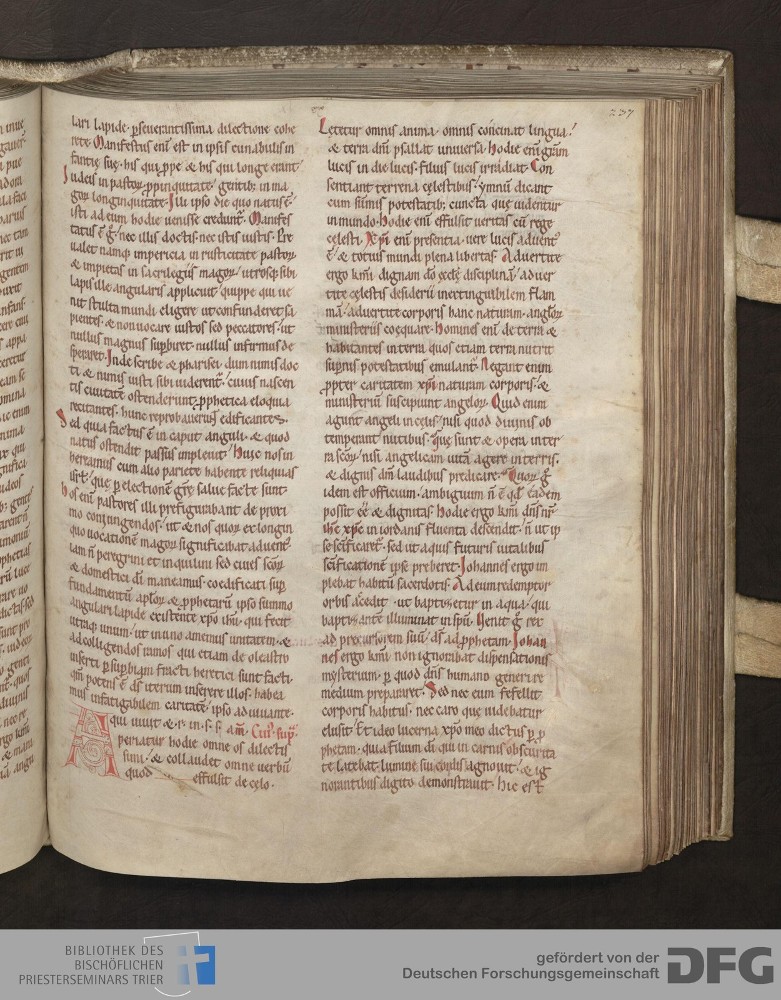 237
lari lapide· ꝑseuerantissima dilectione cohe
rete· Manifestus eni̅ est in ipsis cunabulis in
fantię suę· his qui ꝓpe & his qui longe erant
Iudeis in pastoꝝ ꝓpinquitate· gentib; in ma
goꝝ longinquitate· Illi ipso die quo natus e̅·
isti ad eum hodie uenisse credunt᷑· Manifes
tatus e̅ g̊· nec illis doctis· nec istis iustis· Pre
ualet namq; impericia in rusticitate pastoꝝ
& impietas in sacrilegiis magoꝝ· utrosq; sibi
lapis ille angularis applicuit· quippe qui ue
nit stulta mundi eligere ut confunderet sa
pientes· & non uocare iustos sed peccatores· ut
nullus magnus suꝑbiret· nullus infirmus de
speraret· Inde scribe & pharisei dum nimis doc
ti & nimis iusti sibi uiderent᷑· cuius nascen
tis ciuitate̅ ostenderunt ꝓphetica eloquia
recitantes· hunc reprobauerunt edificantes·
Sed quia factus e̅ in caput anguli· & quod
natus ostendit passus impleuit· Huic nos in
hereamus cum alio pariete habente reliquias
isrl̅· quę ꝑ electione̅ gr̅e salue facte sunt·
hos eni̅ pastores illi prefigurabant de proxi
mo coniungendos· ut & nos quoꝝ ex longin
quo uocatione̅ magoꝝ significabat aduent᷑·
iam n̅ peregrini et inquilini sed ciues scoꝝ
& domestici di̅ maneamus· coedificati suꝑ
fundamentu̅ apl̅oꝝ & ꝓphetaru̅ ipso summo
angulari lapide existente xp̅o ihu̅· qui fecit
utraq; unum· ut in uno amemus unitatem· &
ad colligendos ramos qui etiam de oleastro
inserti ꝑ suꝑbiam fracti heretici sunt facti·
qm̅ potens e̅ ds̅ iterum inserere illos· habea
mus infatigabilem caritate̅· ipso adiuuante·
qui uiuit & r· in· s· s· am̅· Cui᷒ sup̅·
Aperiatur hodie omne os dilectis
simi· & collaudet omne uerbu̅
quod effulsit de cęlo·
Lętetur omnis anima· omnis concinat lingua·
& terra dn̅m psallat uniuersa· hodie eni̅ gr̅am
lucis in die lucis· filius lucis irradiat· Con
sentiant terrena cęlestibus· ymnu̅ dicant
cum sum̅is potestatib; cuncta quę uidentur
in mundo· hodie eni̅ effulsit ueritas cu̅ rege
celesti· Xp̅i eni̅ presentia· uere lucis aduent᷒
e̅· & totius mundi plena libertas· Aduertite
ergo km̅i dignam do̅ xp̅i disciplina̅· aduer
tite cęlestis desiderii inextinguibilem flam
ma̅· aduertite corporis hanc naturam· angl̅oꝝ
ministeriis coęquare· Homines eni̅ de terra &
habitantes in terra quos etiam terra nutrit
suꝑnis potestatibus emulant᷑· Negant enim
ꝓpter caritatem xp̅i naturam corporis· &
ministeriu̅ suscipiunt angeloꝝ· Quid enim
agunt angeli in cęlis· nisi quod diuinis ob
temperant nutibus· Quę sunt & opera inter
ra scoꝝ· nisi angelicam uita̅ agere in terris·
& dignis dm̅ laudibus predicare· Quoꝝ g̊
idem est officium· ambiguum n̅ e̅ qd̅ eadem
possit ee̅ & dignitas· Hodie ergo km̅i dn̅s nr̅
ihc̅ xp̅c in iordanis fluenta descendit· n̅ ut ip
se sc̅ificaret᷑· sed ut aquis futuris uitalibus
sc̅ificatione̅ ipse preberet· Iohannes ergo im
plebat habitu̅ sacerdotis· Ad eum redemptor
orbis accedit· ut baptizetur in aqua· qui
baptizante̅ illuminat in sp̅u· Uenit g̊ rex
ad precursorem suu̅· ds̅ ad ꝓphetam· Iohan
nes ergo km̅i non ignorabat dispensationis
mysterium· ꝑ quod dn̅s humano generi re
medium prepararet· Sed nec eum fefellit
corporis habitus· nec caro quę uidebatur
elusit· Et ideo lucerna xp̅o meo dictus ꝑ ꝓ
phetam· quia filium di̅ qui in carnis obscurita
te latebat· lumine sui cordis agnouit· & ig
norantibus digito demonstrauit· hic est
BIBLIOTHEK DES
BISCHÖFLICHEN
PRIESTERSEMINARS TRIER
gefördert von der
Deutschen Forschungsgemeinschaft
DFG